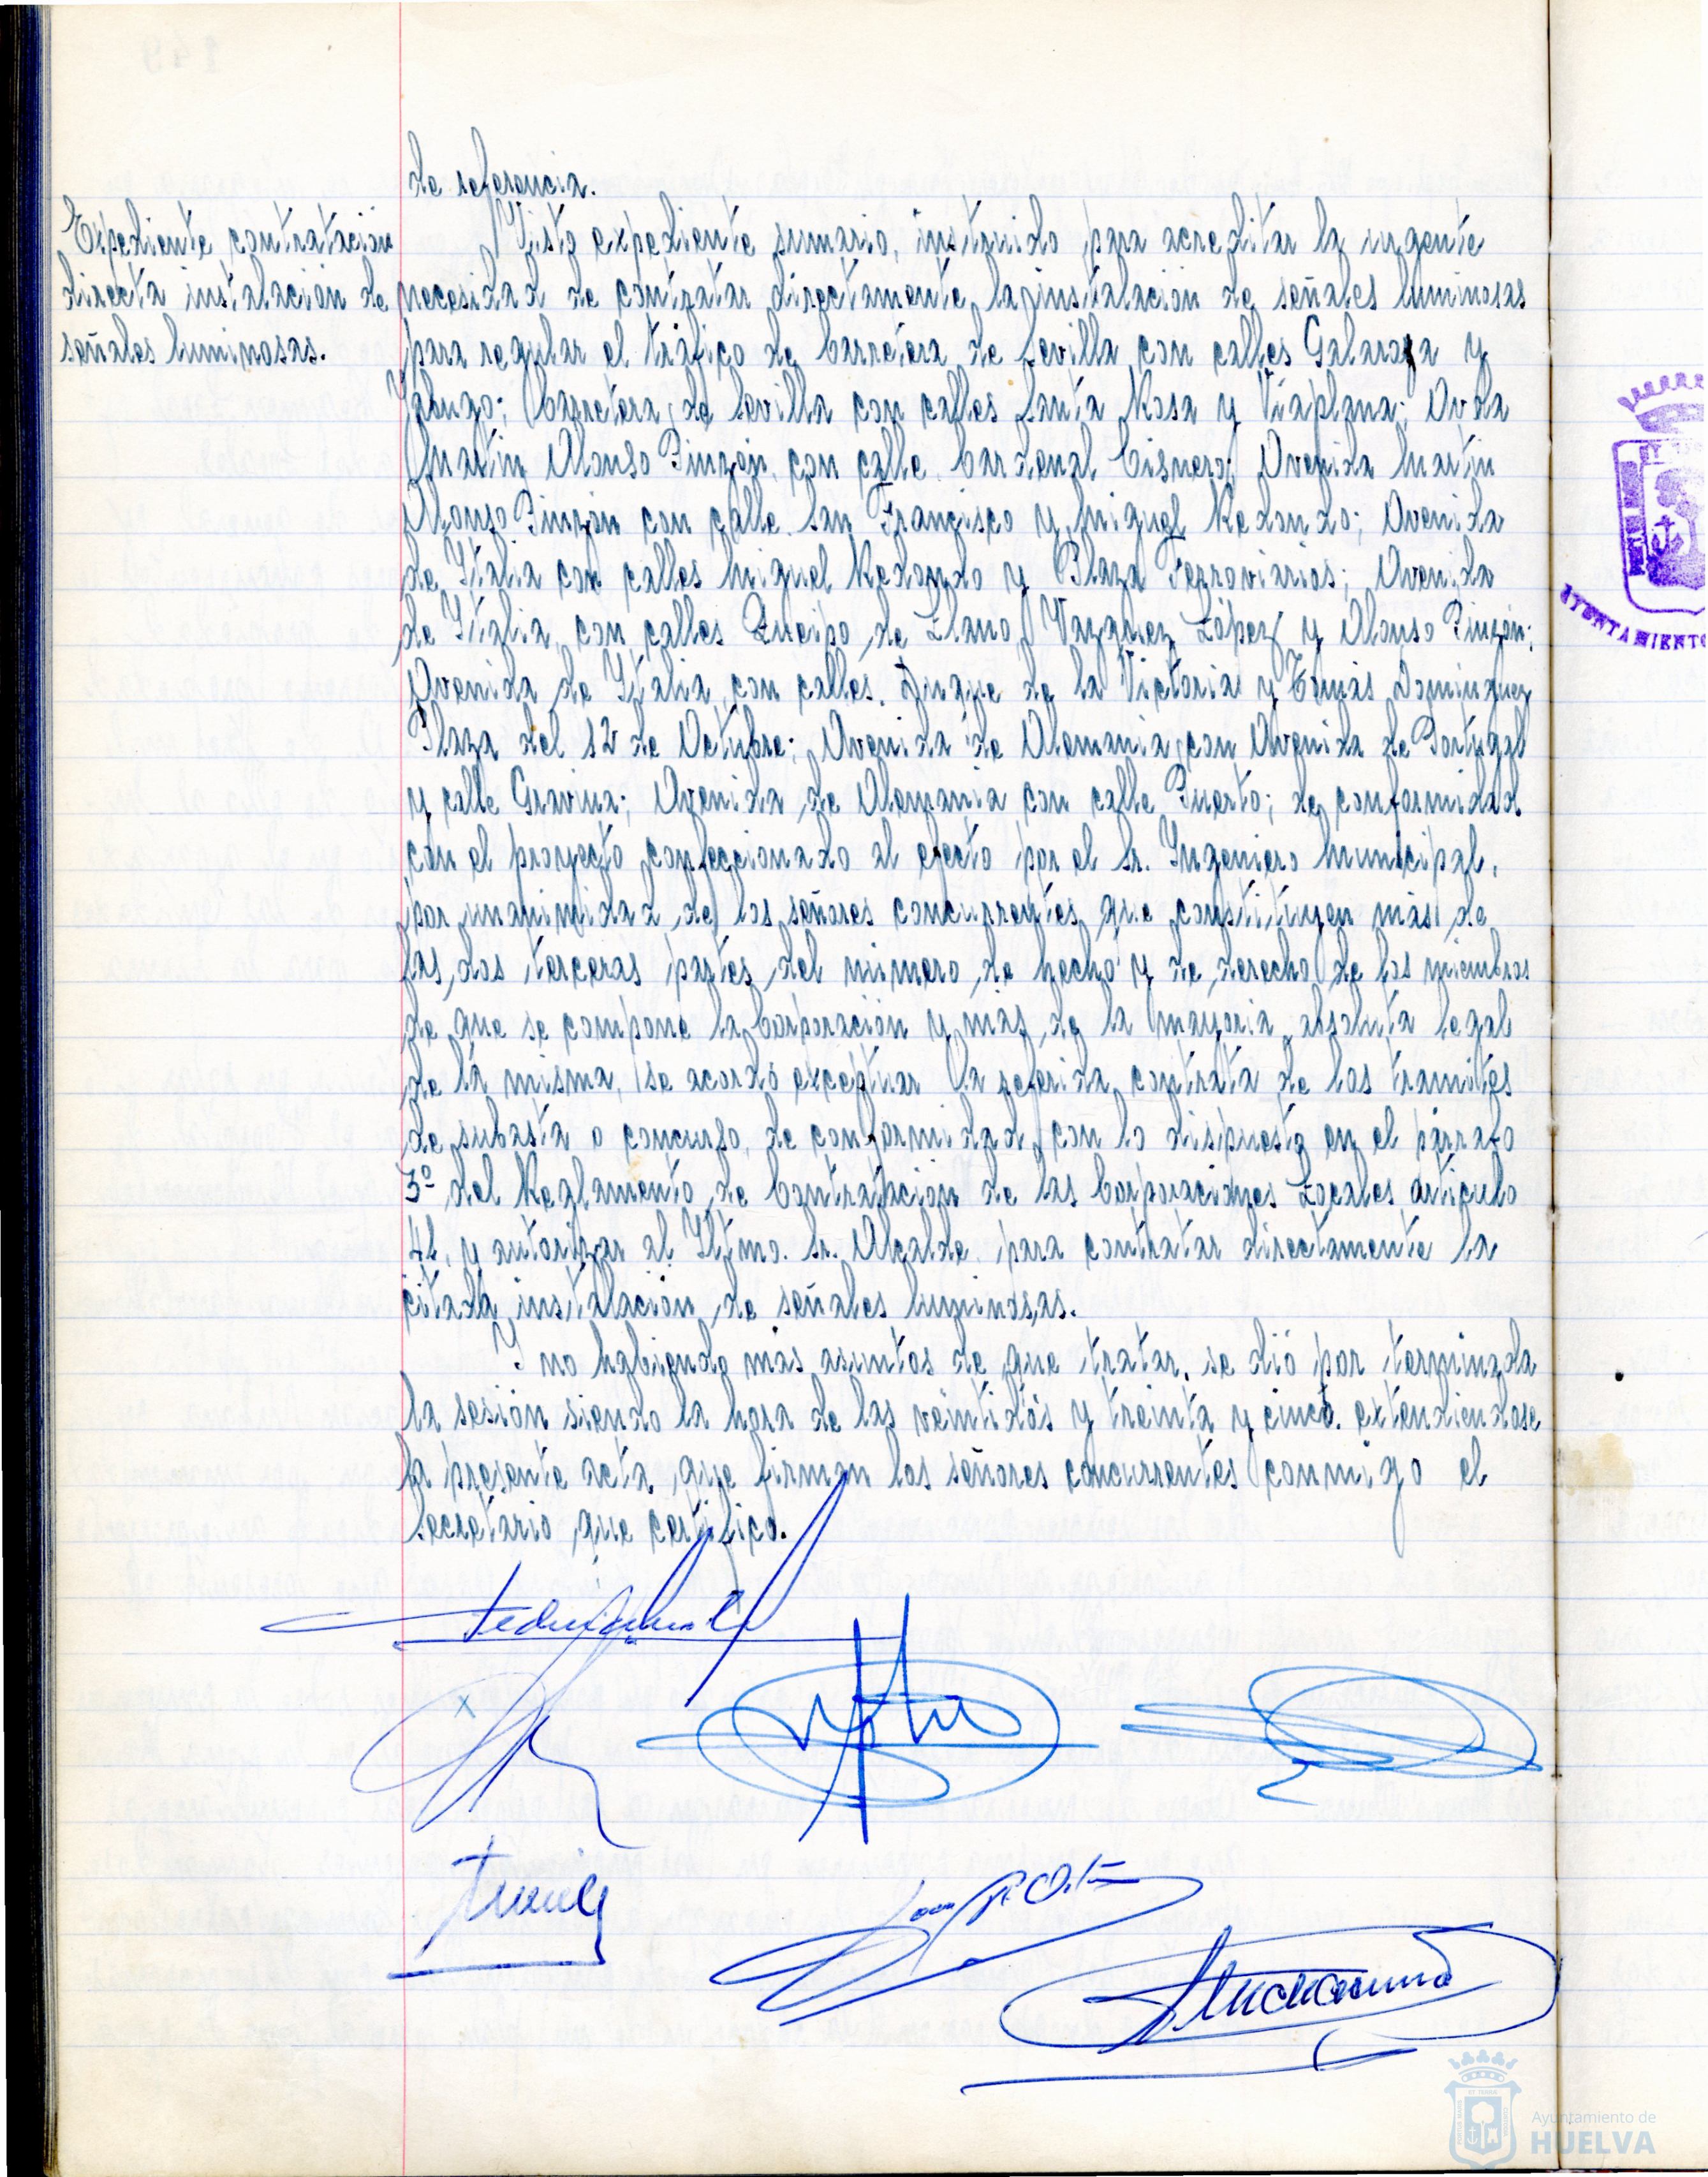 de referencia.
Expediente contratación
directa instalación de
señales luminosas.
Visto expediente sumario, instruido para acreditar la urgente
necesidad de contratar directamente la instalación de señales luminosas
para regular el tráfico de Carretera de Sevilla con calles Galaroza y
Jabugo; Carretera de Sevilla con calles Santa Rosa y Viaplana; Avda
Martín Alonso Pinzón con calle Cardenal Cisnero; Avenida Martín
Alonso Pinzón con calle San Francisco y Miguel Redondo; Avenida
de Italia con calles Miguel Redondo y Plaza Ferroviarios; Avenida
de Italia con calles Queipo de Llano, Vázquez López y Alonso Pinzón;
Avenida de Italia con calles Duque de la Victoria y Tomás Dominguez
Plaza del 12 de Octubre; Avenida de Alemania con Avenida de Portugal
y calle Gravina; Avenida de Alemania con calle Puerto; de conformidad
con el proyecto confeccionado al efecto por el Sr. Ingeniero Municipal,
por unanimidad de los señores concurrentes que constituyen más de
las dos terceras partes del número de hecho y de derecho de los miembros
de que se compone la Corporación y más de la mayoria absoluta legal
de la misma, se acordó exceptuar la referida contrata de los tramites
de subasta o concurso, de conformidad con lo dispuesto en el párrafo
3º del Reglamento de Contratación de las Corporaciones Locales artículo
41, y autorizar al Iltmo. Sr. Alcalde para contratar directamente la
citada instalación de señales luminosas.
Y no habiendo más asuntos de que tratar, se dió por terminada
la sesión siendo la hora de las veintidós y treinta y cinco. extendiendose
la presente acta, que firman los señores concurrentes conmigo el
Secretario, que certifico.
AYUNTAMIENTO
Ayuntamiento de
HUELVA